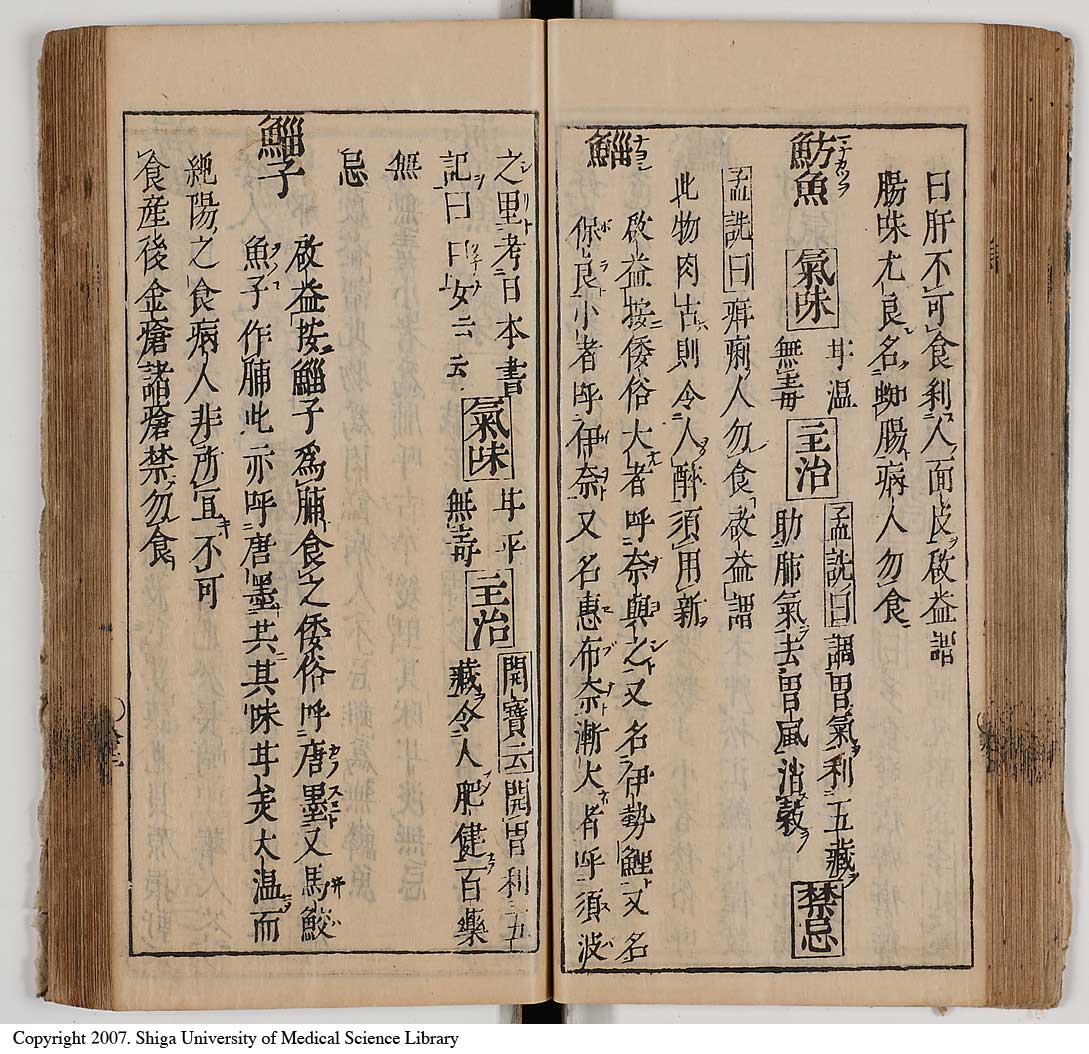 曰肝不可食利人面皮啟益謂
腸味尤良名蜘腸病人勿食
魴魚 氣味 甘温無毒 主治 孟詵曰調胃氣利五藏
助肺氣去胃風消穀 禁忌
孟詵曰疳痢人勿食啟益謂
此物肉古則令人醉須用新
鯔 啟益按倭俗大者呼奈與之又名伊勢鯉又名
保良小者呼伊奈又名惠布奈漸大者呼須波
之里考日本書
記曰口女云云 氣味 甘平無毒 主治 開寶云開胃利五
藏令人肥健百藥
無
忌
鯔子 啟益按鯔子為脯食之倭俗呼唐墨又馬鮫
魚子作脯此亦呼唐墨共其味甘美大温而
絶陽之食病人非所宜不可
食産後金瘡諸瘡禁勿食
Copyright 2007. Shiga University of Medical Science Library